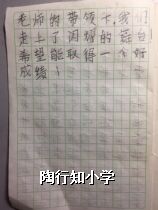 老师的带领下,我们
走上了闪耀的舞台
希望能取得一个好
成绩!
陶行知小学